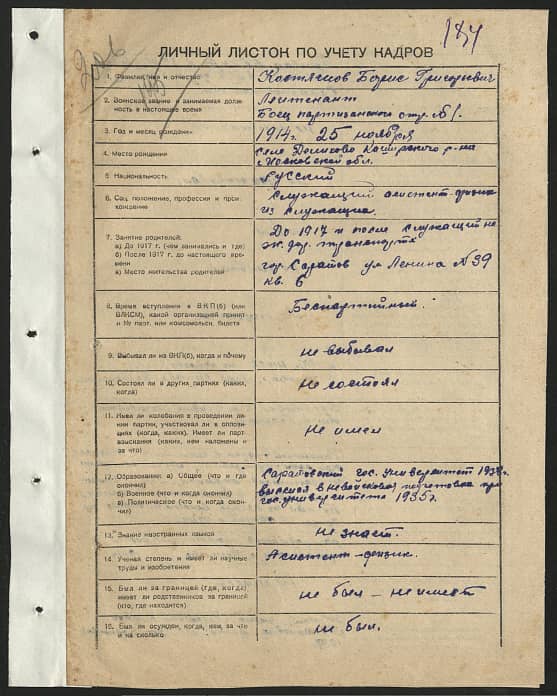 184
ЛИЧНЫЙ ЛИСТОК ПО УЧЕТУ КАДРОВ
1. Фамилия, имя и отчество
Борис Григорьевич
2. Воинское звание и занимаемая долж-
ность в настоящее время
Лейтенант
Боец партизанского отр. №1.
3. Год и месяц рождения
1914 г. 25 ноября
4. Место рождения
село Каширского р-на
Московской обл.
5. Национальность
Русский
6. Соц. положение, профессия и прои-
хождение
Служащий ассистент-физик
из служащих.
7. Занятие родителей:
а) До 1917 г. (чем занимались и где)
б) После 1917 г. до настоящего вре-
мени
в) Место жительства родителей
До 1917 и после служащий на
ж. дор. транспорте
гор. Саратов ул. Ленина №39
кв. 6
8. Время вступления в ВКП(б) (или
ВЛКСМ), какой организацией принят
и № парт. или комсомольск. билета
Беспартийный.
9. Выбывал ли из ВКП(б), когда и почему
не выбывал
10. Состоял ли в других партиях (каких,
когда)
Не состоял
11. Имел ли колебания в проведении ли-
нии партии, участвовал ли в оппози-
циях (когда, каких). Имеет ли парт-
взыскания (каких, кем наложены и
за что)
Не имел
12. Образование: а) Общее (что и где
окончил)
б) Военное (что и когда окончил)
в) Политическое (что и когда окон-
чил)
Саратовский гос. университет
высшая вневойсковая подготовка при
гос. университете 1935 г.
13. Знание иностранных языков
Не знает.
14. Ученая степень и имеет ли научные
труды и изобретения
Асистент-физик.
15. Был ли за границей (где, когда)
имеет ли родственников за границей
(кто, где находится)
не был – не имеет
16. Был ли осужден, когда, кем, за что
и на сколько
не был.